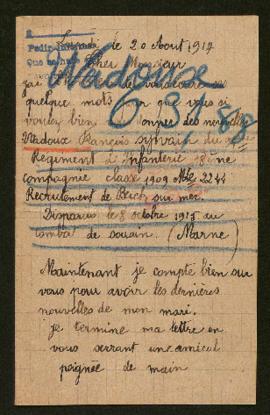 Pedir informe
le 20 Aout 1917
Cher Monsieur
Nadoux
63,
quelque mots pour que vous si
voulez bien donner des nouvelles
Nadoux François Sylvain du
Regiment d'Infanterie 18 ème
Compagnie classe 1909 Mle 2244
Recrutement de
sur mer
Disparus le 8 octobre 1915 au
combat de Souain. (Marne)
Maintenant je compte bien sur
vous pour avoir les dernières
nouvelles de mon mari.
je termine ma lettre en
vous serrant un amical
poignée de main